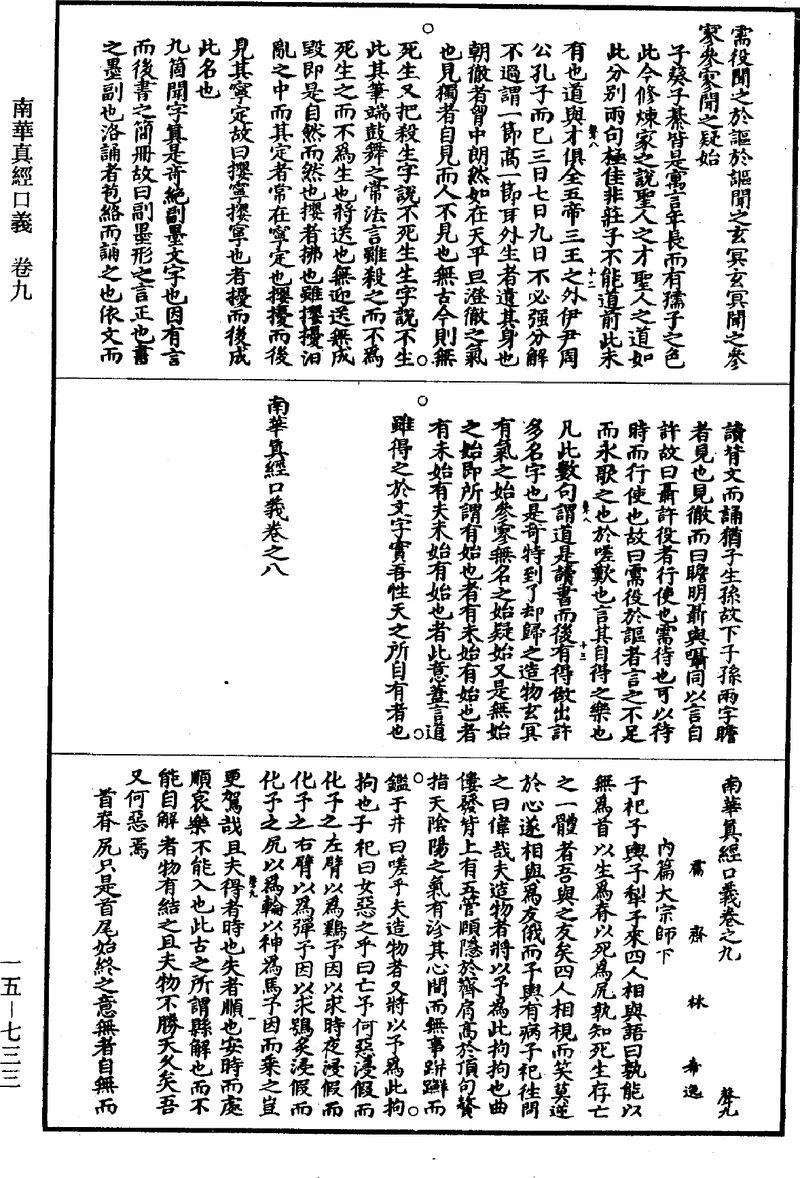 南華真經口義　卷九
需役聞之於謳於謳聞之玄冥玄冥聞之參
寥參寥聞之疑始
子葵子綦皆是寓言年長而有孺子之色
此今修煉家之說聖人之才聖人之道如
此分別兩句極佳非莊子不能道前此未
聲八　十二
有也道與才俱全五帝三王之外伊尹周
公孔子而已三日七日九日不必强分解
不過謂一節高一節耳外生者遺其身也
朝徹者胷中朗然如在天平旦澄徹之氣
也見獨者自見而人不見也無古今則無
死生又把殺生字說不死生生字說不生
此其筆端鼓舞之常法言雖殺之而不為
死生之而不為生也將送也無迎送無成
毀即是自然而然也攖者拂也雖攖擾汩
亂之中而其定者常在寧定也攖擾而後
見其寧定故曰攖寧攖寧也者擾而後成
此名也
九箇聞字算是奇絕副墨文字也因有言
而後書之簡冊故曰副墨形之言正也書
之墨副也洛誦者苞絡而誦之也依文而
讀背文而誦猶子生孫故下子孫兩字瞻
者見也見徹而曰瞻明聶與囁同以言自
許故曰聶許役者行使也需待也可以待
時而行使也故曰需役於謳者言之不足
而永歌之也於嗟歎也言其自得之樂也
聲八　十三
凡此數句謂道是讀書而後有得做出許
多名字也是奇特到了却歸之造物玄冥
有氣之始參寥無名之始疑始又是無始
之始即所謂有始也者有未始有始也者
有未始有夫未始有始也者此意蓋言道
雖得之於文字實吾性天之所自有者也
南華真經口義卷之八
南華真經口義卷之九　聲九
鬳　齋　林　希　逸
內篇大宗師下
子祀子輿子犁子來四人相與語曰孰能以
無為首以生為脊以死為尻孰知死生存亡
之一體者吾與之友矣四人相視而笑莫逆
於心遂相與為友俄而子輿有病子祀往問
之曰偉哉夫造物者將以予為此拘拘也曲
僂發背上有五管頤隱於齊肩高於頂句贅
指天陰陽之氣有沴其心間而無事跰𨇤而
鑑于井曰嗟乎夫造物者又將以予為此拘
拘也子祀曰女惡之乎曰亡予何惡浸假而
化予之左臂以為鷄予因以求時夜浸假而
化予之右臂以為彈予因以求鴞炙浸假而
化予之尻以為輪以神為馬予因而乘之豈
聲九　一
更駕哉且夫得者時也失者順也安時而處
順哀樂不能入也此古之所謂縣解也而不
能自解者物有結之且夫物不勝天久矣吾
又何惡焉
首脊尻只是首尾始終之意無者自無而
一五—七三三